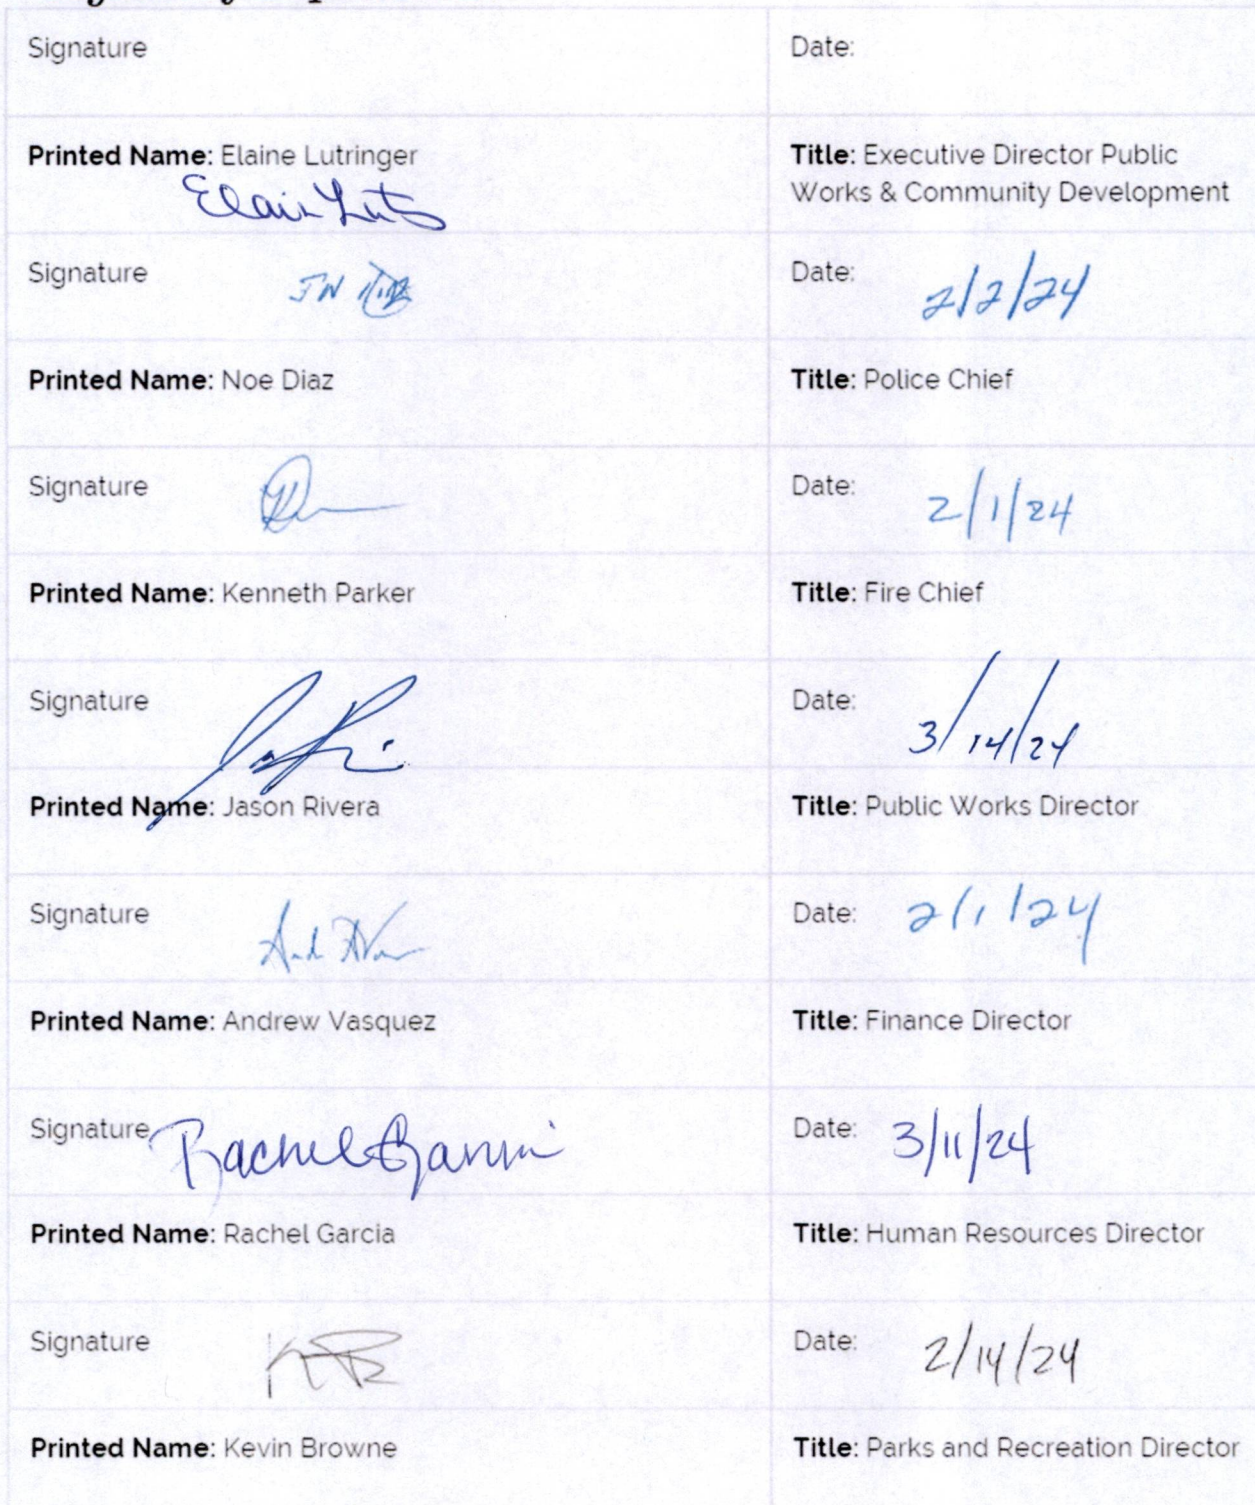 Signature Date:
Printed Name: Elaine Lutringer Title: Executive Director Public
Works & Community Development
Signature Date: 2/2/24
Printed Name: Noe Diaz Title: Police Chief
Signature Date: 2/1/24
Printed Name: Kenneth Parker Title: Fire Chief
Signature Date: 3/14/24
Printed Name: Jason Rivera Title: Public Works Director
Signature Date: 2/1/24
Printed Name: Andrew Vasquez Title: Finance Director
Signature Rachel Garcia Date: 3/11/24
Printed Name: Rachel Garcia Title: Human Resources Director
Signature Date: 2/14/24
Printed Name: Kevin Browne Title: Parks and Recreation Director